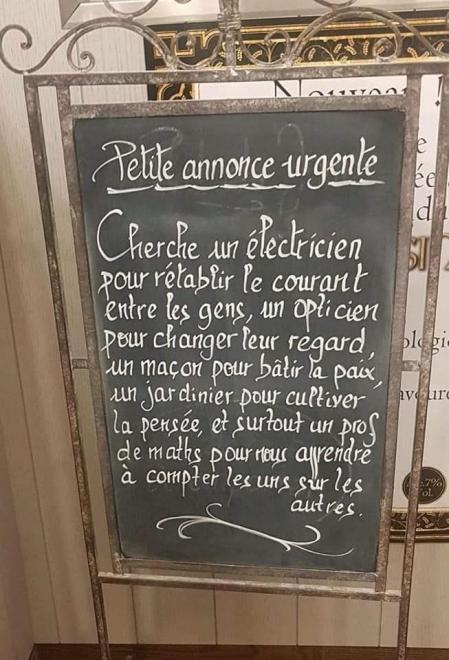 Nouveau !
Petite annonce urgente
Cherche un électricien
pour rétablir le courant
entre les gens, un opticien
pour changer leur regard,
un maçon pour bâtir la paix,
un jardinier pour cultiver
la pensée, et surtout un prof
de maths pour nous apprendre
à compter les uns sur les
autres.